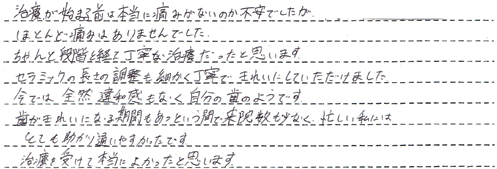 治療が始まる前は本当に痛みがないのか不安でしたが、
ほとんど痛みはありませんでした。
ちゃんと段階を経て丁寧な治療だったと思います
セラミックの長さの調整も細かく丁寧できれいにしていただけました
今では全然違和感もなく自分の歯のようです
歯がきれいになる期間もあっという間で来院数も少なく、忙しい私には
とても助かり通いやすかったです
治療を受けて本当によかったと思います